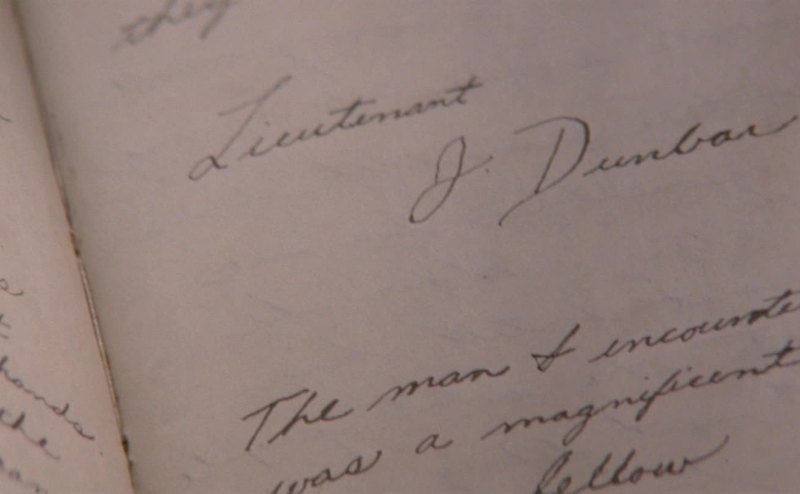 they
Lieutenant
J. Dunbar
The man I
was a magnificent
fellow
hands
the